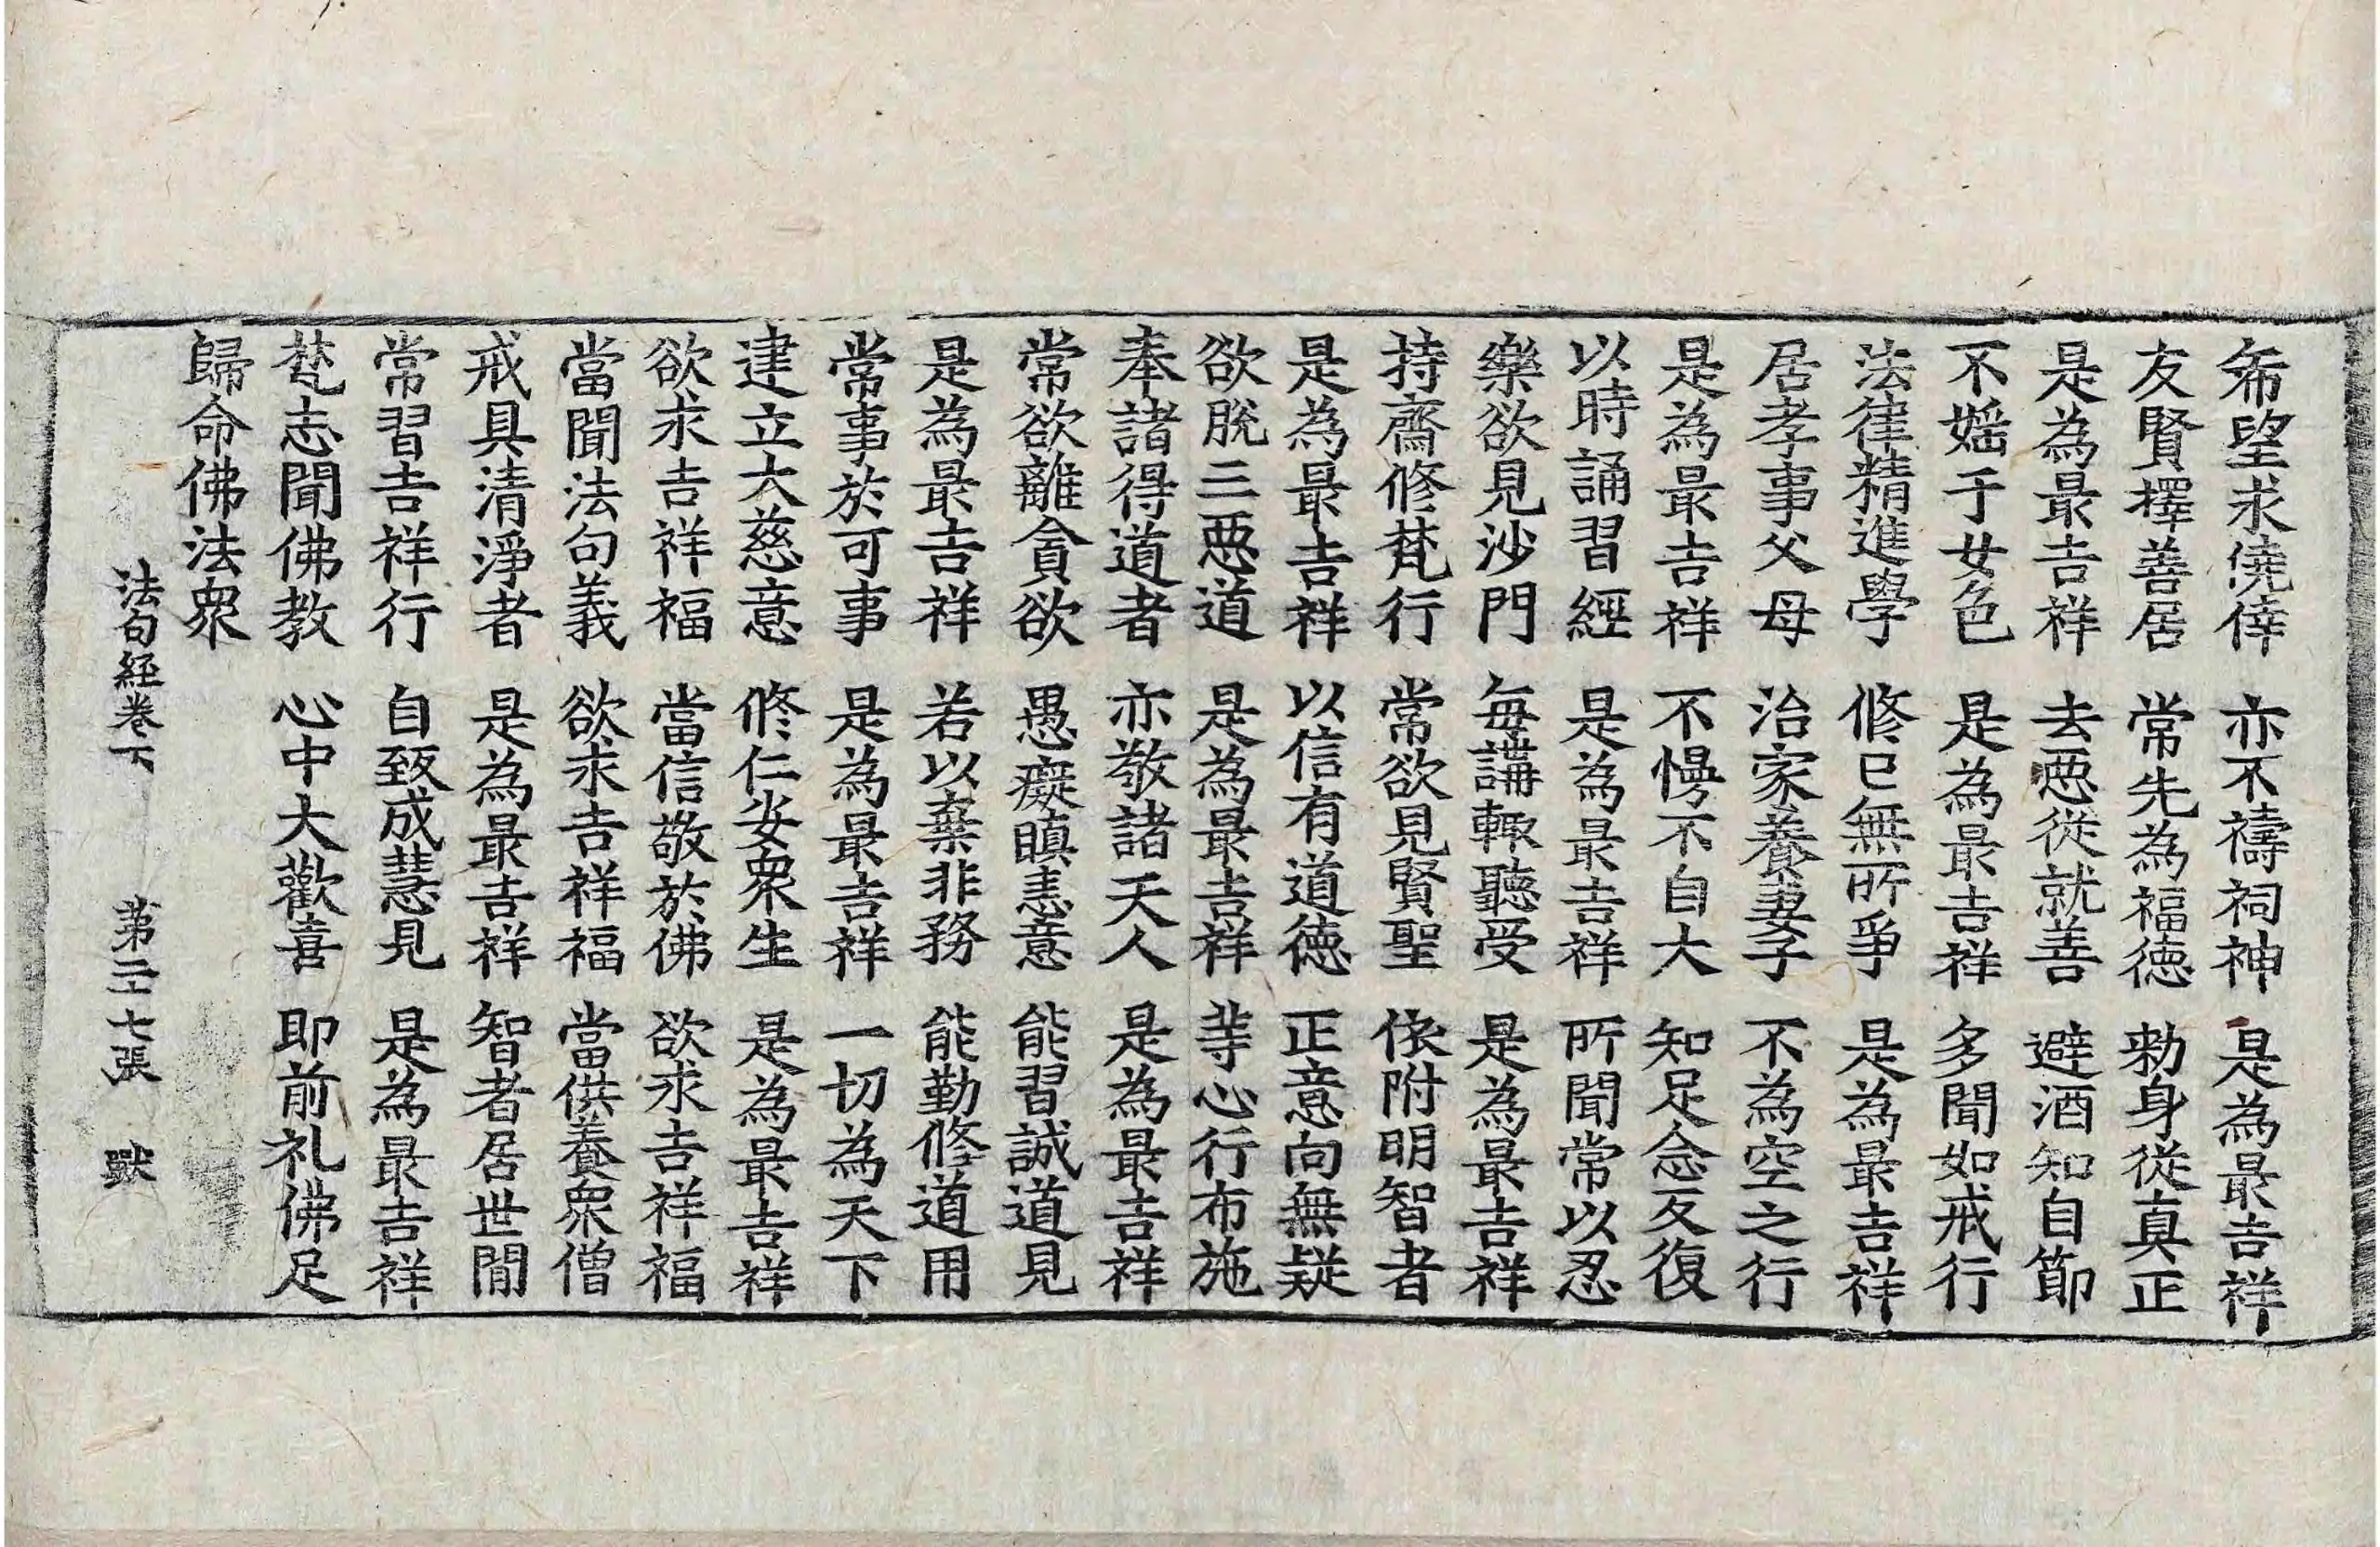 希望求僥倖 亦不禱祠神 是為最吉祥
友賢擇善居 常先為福徳 勑身從真正
是為最吉祥 去惡從就善 避酒知自節
不婬于女色 是為最吉祥 多聞如戒行
法律精進學 修已無所爭 是為最吉祥
居孝事父母 治家養妻子 不為空之行
是為最吉祥 不慢不自大 知足念反復
以時誦習經 是為最吉祥 所聞常以忍
樂欲見沙門 每講輒聽受 是為最吉祥
持齋修梵行 常欲見賢聖 依附明智者
是為最吉祥 以信有道徳 正意向無疑
欲脫三惡道 是為最吉祥 等心行布施
奉諸得道者 亦敬諸天人 是為最吉祥
常欲離貪欲 愚癡瞋恚意 能習誠道見
是為最吉祥 若以棄非務 能勤修道用
常事於可事 是為最吉祥 一切為天下
建立大慈意 修仁安衆生 是為最吉祥
欲求吉祥福 當信敬於佛 欲求吉祥福
當聞法句義 欲求吉祥福 當供養衆僧
戒具清淨者 是為最吉祥 智者居世間
常習吉祥行 自致成慧見 是為最吉祥
梵志聞佛教 心中大歡喜 即前礼佛足
歸命佛法衆
法句經卷下 第二十七張